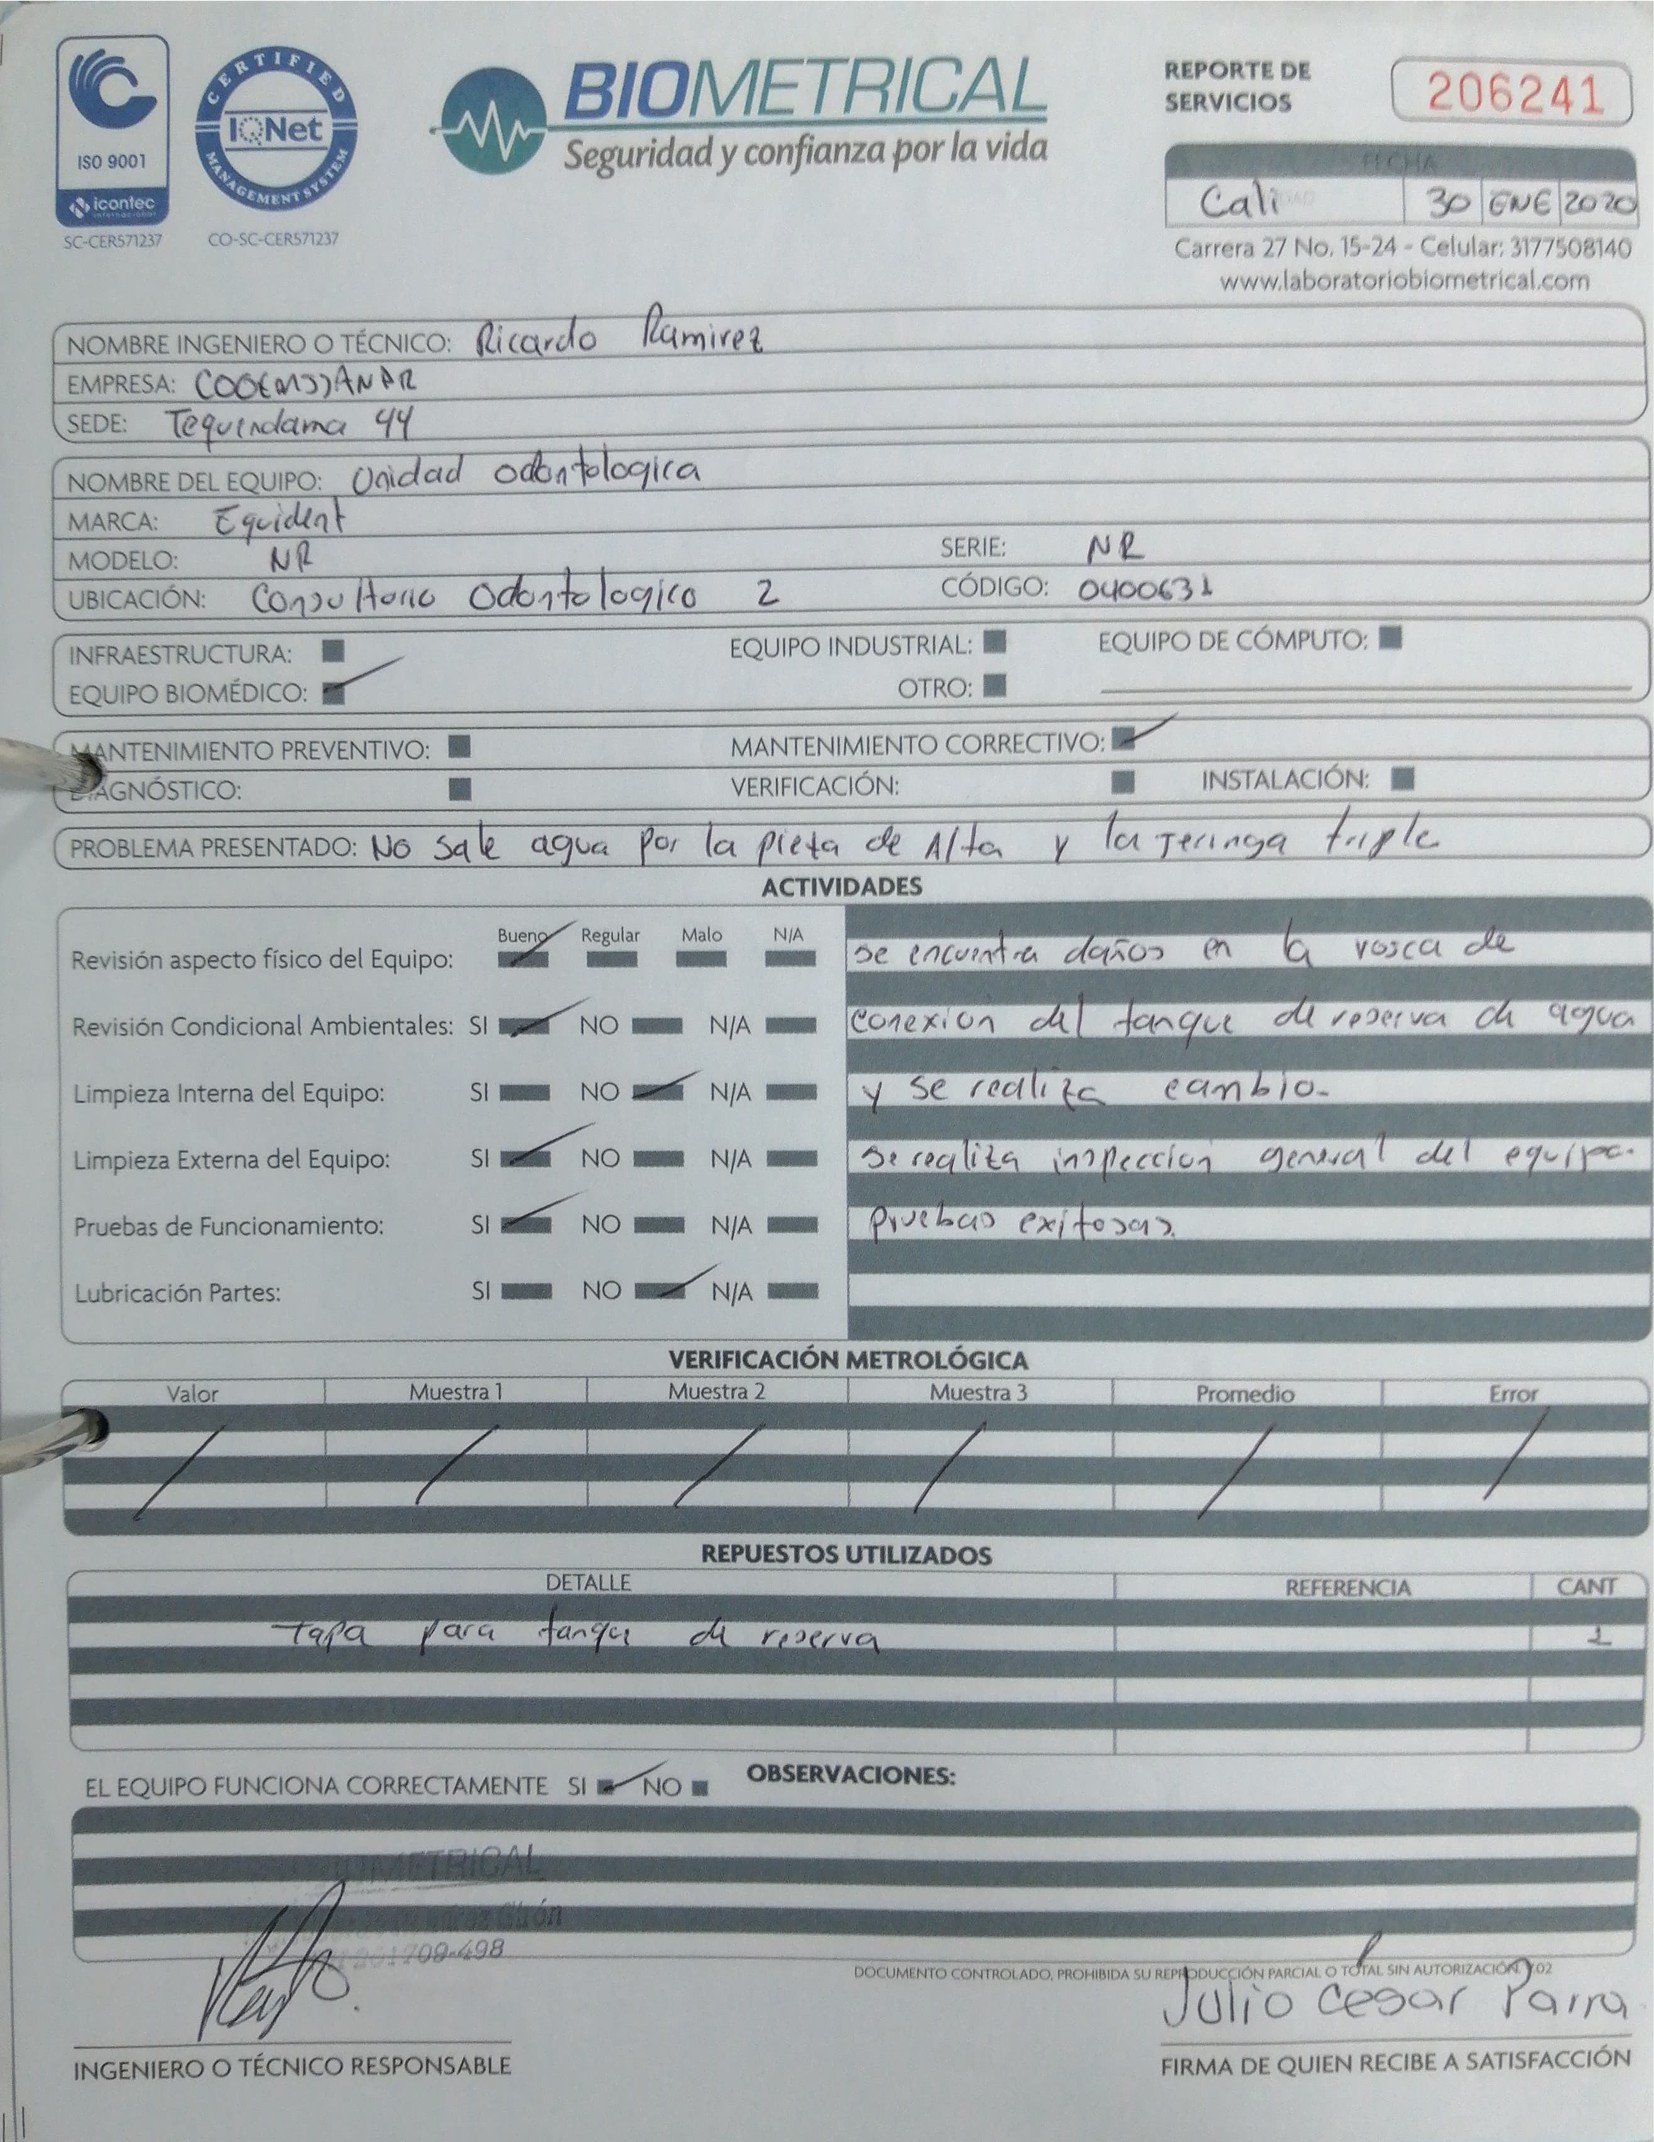 ISO 9001
icontec
internacional
SC-CER571237
CERTIFIED
IQNet
MANAGEMENT SYSTEM
CO-SC-CER571237
BIOMETRICAL
Seguridad y confianza por la vida
REPORTE DE SERVICIOS 206241
FECHA
Cali 30 ENE 2020
Carrera 27 No. 15-24 - Celular: 3177508140
www.laboratoriobiometrical.com
NOMBRE INGENIERO O TÉCNICO: Ricardo Ramirez
EMPRESA:
SEDE: Tequendama 44
NOMBRE DEL EQUIPO: Unidad odontologica
MARCA: Equident
MODELO: NR SERIE: NR
UBICACIÓN: Consultorio Odontologico 2 CÓDIGO: 0400631
INFRAESTRUCTURA: EQUIPO INDUSTRIAL: EQUIPO DE CÓMPUTO:
EQUIPO BIOMÉDICO: OTRO:
MANTENIMIENTO PREVENTIVO: MANTENIMIENTO CORRECTIVO:
DIAGNÓSTICO: VERIFICACIÓN: INSTALACIÓN:
PROBLEMA PRESENTADO: No sale agua por la pieza de Alta y la Jeringa triple
ACTIVIDADES
Bueno Regular Malo N/A
Revisión aspecto físico del Equipo:
Revisión Condicional Ambientales: SI NO N/A
Limpieza Interna del Equipo: SI NO N/A
Limpieza Externa del Equipo: SI NO N/A
Pruebas de Funcionamiento: SI NO N/A
Lubricación Partes: SI NO N/A
se encuentra daños en la rosca de
conexion del tanque de reserva de agua
y se realiza cambio.
se realiza inspeccion general del equipo.
pruebas exitosas.
VERIFICACIÓN METROLÓGICA
Valor Muestra 1 Muestra 2 Muestra 3 Promedio Error
REPUESTOS UTILIZADOS
DETALLE REFERENCIA CANT
Tapa para tanque de reserva 1
EL EQUIPO FUNCIONA CORRECTAMENTE SI NO OBSERVACIONES:
DOCUMENTO CONTROLADO, PROHIBIDA SU REPRODUCCIÓN PARCIAL O TOTAL SIN AUTORIZACIÓN. V.02
Julio Cesar Parra
INGENIERO O TÉCNICO RESPONSABLE
FIRMA DE QUIEN RECIBE A SATISFACCIÓN